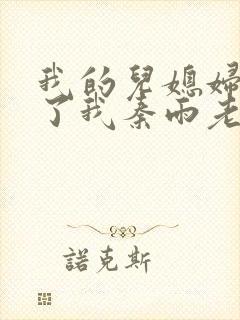 我的兒媳婦
了我秦雨老
諾克斯